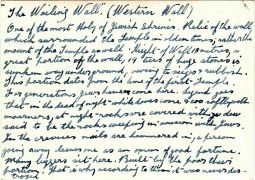 The Wailing Wall. (Western Wall)
One of the most Holy of Jewish Shrines. Relic of the wall
which surrounded the Temple in olden times, rather the
mount of the Temple as well - Height of Wall metres, a
great portion of the wall, 19 tiers of huge stones is
sunken way underground, owing to ages rubbish.
This portion dates from the time of the first Temple.
For generations Jews have come here. legend goes
that in the dead of night white doves come & coo softly with
mourners, at night rocks are covered with dew
said to be the rocks weeping in unison with Jews.
In the crevices nails are hammered in, a person
going away leaves one as an omen of good fortune.
Many beggars sit here. Built by the poor their
portion. That is why according to them it was never des-
troyed